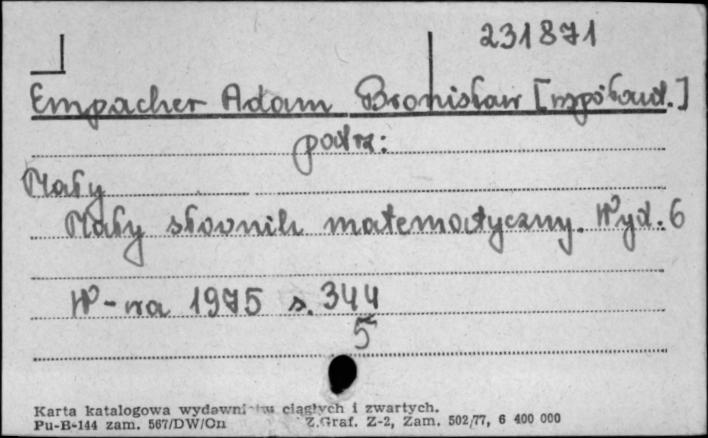 231871
Empacher Adam Bronisław [współaut.]
podrz:
Mały
Mały słownik matematyczny. Wyd. 6
W-wa 1975 s. 344
5
Karta katalogowa wydawnictw ciągłych i zwartych.
Pu-B-144 zam. 567/DW/On Z.Graf. Z-2, Zam. 502/77, 6 400 000